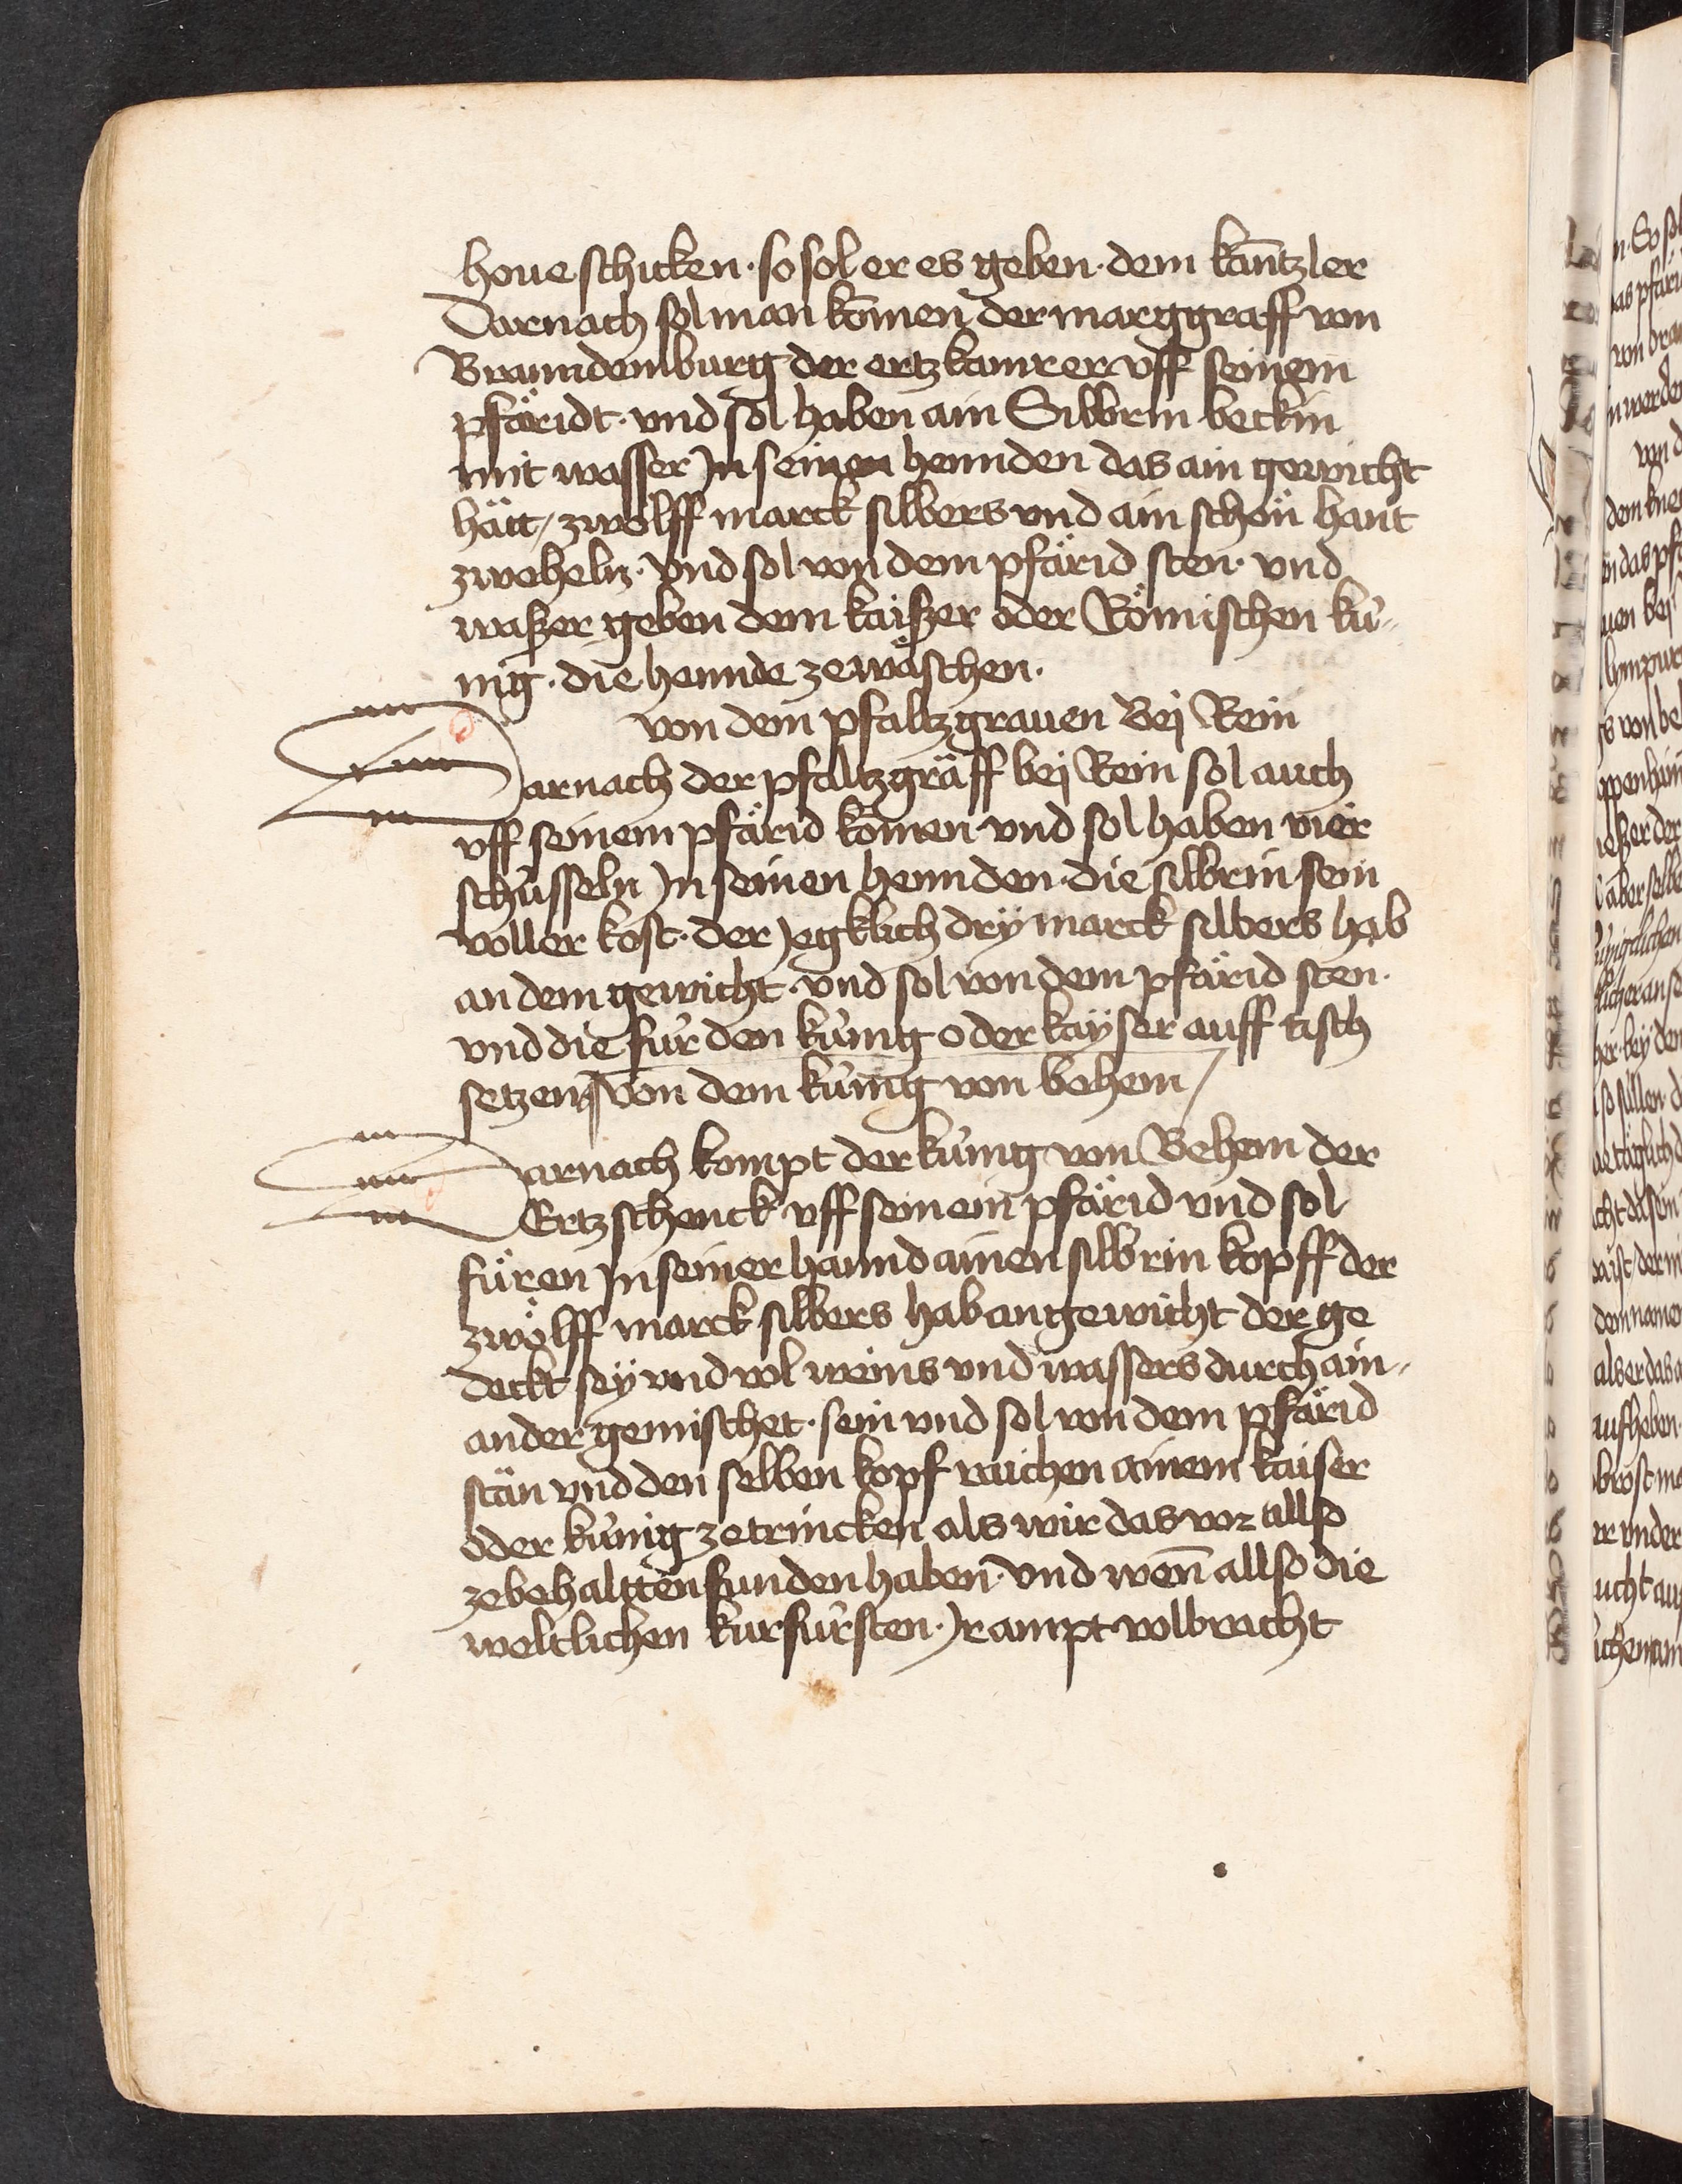 houe schicken · so sol er es geben · dem kāntzler
Darnach sol man komen der marggraff von
Branndemburg der ertzkamrer vff seinem
pfäridt · vnd sol haben ain Silbrin beckin
mit wasser Jn seinen hennden das ain gewicht
hätt / zwölff marck silbers vnd ain schön hant
zweheln · vnd sol von dem pfärid sten · vnd
waßer geben dem kaißer oder Römischen kü-
nig · die hennde zewäschen ·
von dem pfaltzgrauen Bej Rein
Darnach der pfaltzgräff bej Rein sol auch
vff seinem pfärid komen vnd sol haben vier
schüsseln Jn seinen hennden · die silbrin sein
voller kost · der Jegklich drÿ marck silbers hab
an dem gewicht · vnd sol von dem pfärid sten ·
vnd die für den künig oder kaÿser auff tisch
setzen von dem künig von behem /
Darnach kompt der künig von Behem der
Ertzschenck vff seinem pfärid vnd sol
füren Jn seiner hannd ainen silbrin kopff der
zwölff marck silbers hab an gewicht der ge
deckt seÿ vnd vol weins vnd wassers durch ain-
ander gemischet · sein vnd sol von dem pfärid
stän vnd den selben kopf raichen ainem kaiser
oder künig zetrincken als wir das vor allso
zebehaltten funden haben · vnd wen̄ allso die
weltlichen kurfürsten · Jr ampt volbracht